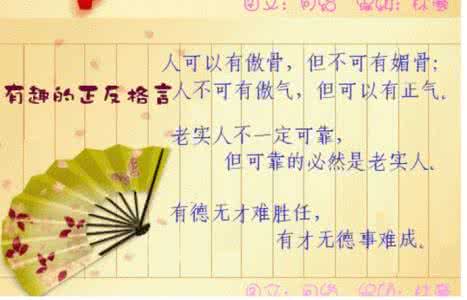 有趣的正反格言
人可以有傲骨，但不可有媚骨；
人不可有傲气，但可以有正气。
老实人不一定可靠，
但可靠的必然是老实人。
有德无才难胜任，
有才无德事难成。